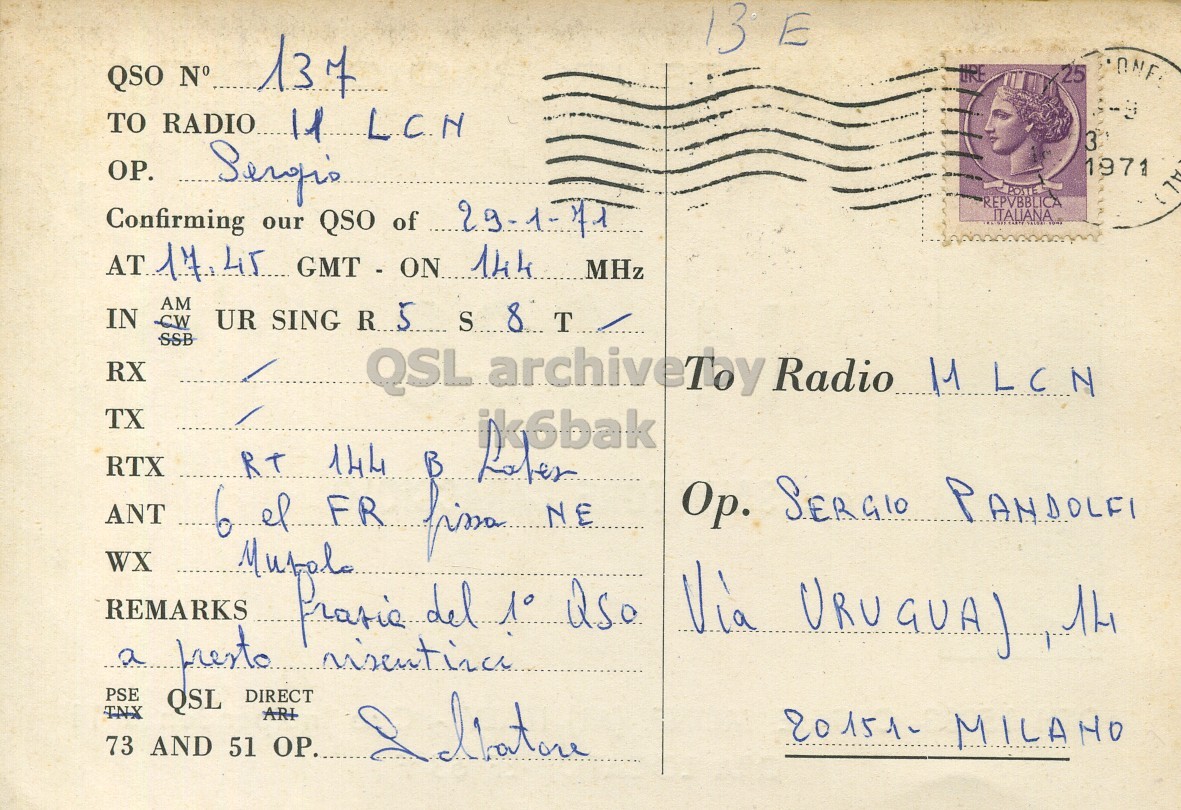 13 E
QSO Nº 137
TO RADIO I1 LCN
OP. Sergio
Confirming our QSO of 29-1-71
AT 17.45 GMT - ON 144 MHz
IN AM CW SSB UR SING R 5 S 8 T /
RX /
TX /
RTX RT 144 B Labes
ANT 6 el FR fissa NE
WX Nuvolo
REMARKS grazie del 1° QSO
a presto risentirci
PSE TNX QSL DIRECT ARI
73 AND 51 OP. Salvatore
LIRE 25
POSTE
REPVBBLICA
ITALIANA
1971
To Radio I1 LCN
Op. SERGIO PANDOLFI
Via URUGUAJ, 14
20151- MILANO
QSL archive by
ik6bak